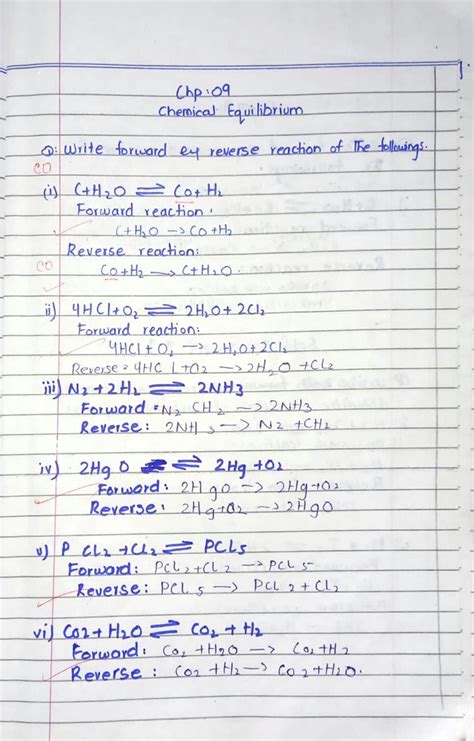 1.
Chp:09
Chemical Equilibrium
Q: Write forward & reverse reaction of The followings.
CO
(i) C+H₂O ⇌ Co+H₂
Forward reaction.
C+H₂O → CO+H₂
Reverse reaction:
CO
Co+H₂ → C+H₂O.
ii) 4HCl+O₂ ⇌ 2H₂O+2Cl₂
Forward reaction:
4HCl+O₂ → 2H₂O+2Cl₂
Reverse = 4HC l+O2 → 2H₂O +CL₂
iii) N₂+2H₂ ⇌ 2NH3
Forward = N₂ CH₂ → 2NH3
Reverse: 2NH3 → N₂ +CH₂
iv) 2HgO ⇌ 2Hg+O₂
Forward: 2HgO → 2Hg+O₂
Reverse: 2Hg+O₂ → 2HgO
v) P CL₂+CL₂ ⇌ PCL5
Forward: PCL₂+CL₂ → PCL5
Reverse: PCL5 → PCL2+CL₂
vi) CO2+H₂O ⇌ CO₂+H₂
Forward: CO₂+H₂O → CO₂+H₂
Reverse: CO₂+H₂ → CO2+H₂O.